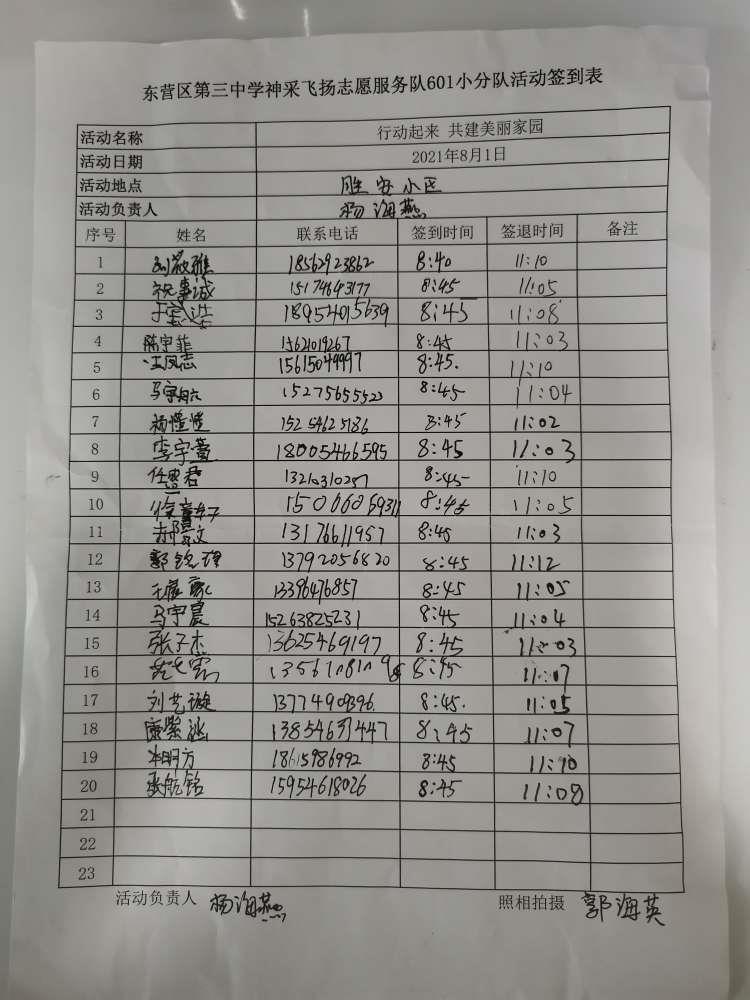 东营区第三中学神采飞扬志愿服务队601小分队活动签到表
活动名称 行动起来 共建美丽家园
活动日期 2021年8月1日
活动地点 胜安小区
活动负责人 杨海燕
序号 姓名 联系电话 签到时间 签退时间 备注
1 18562923862 8:40 11:10
2 祝事诚 15174643177 8:45 11:05
3 18954015639 8:45 11:08
4 陈宇菲 15621019267 8:45 11:03
5 汪凤志 15615044997 8:45. 11:10
6 马宇航 15275655523 8:45 11:04
7 杨惟恺 8:45 11:02
8 李宇萱 18005466595 8:45 11:03
9 任思君 13210310257 8:45 11:10
10 8:45 11:05
11 郝景文 13176611957 8:45 11:03
12 郭铭璋 13792056820 8:45 11:12
13 13396476857 8:45 11:05
14 马宇晨 15263825231 8:45 11:04
15 张子杰 13625469197 8:45 11:03
16 8:45 11:07
17 刘艺璇 8:45. 11:05
18 康紫涵 13854631447 8:45 11:07
19 18615986992 8:45 11:10
20 张航铭 15954618026 8:45 11:08
21
22
23
活动负责人 杨海燕 照相拍摄 郭海英